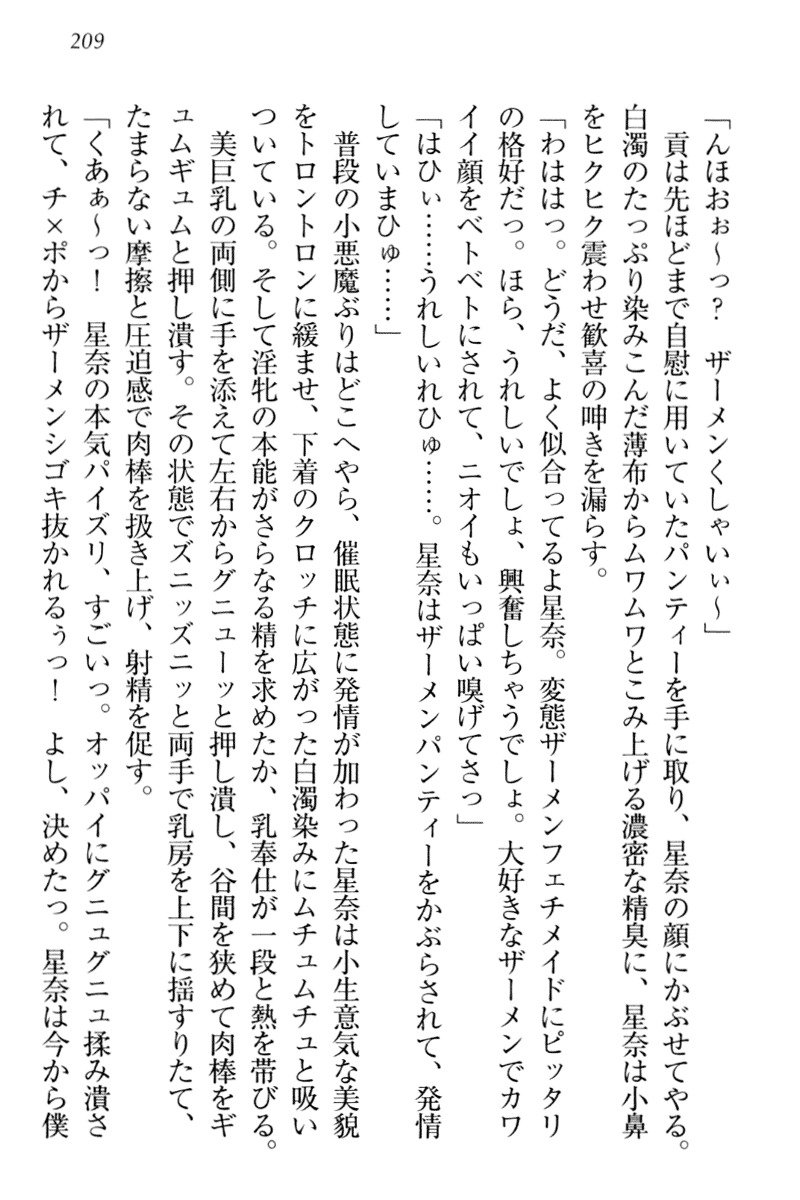 209
「んほおぉ〜っ？　ザーメンくしゃいぃ〜」
　貢は先ほどまで自慰に用いていたパンティーを手に取り、星奈の顔にかぶせてやる。
白濁のたっぷり染みこんだ薄布からムワムワとこみ上げる濃密な精臭に、星奈は小鼻
をヒクヒク震わせ歓喜の呻きを漏らす。
「わははっ。どうだ、よく似合ってるよ星奈。変態ザーメンフェチメイドにピッタリ
の格好だっ。ほら、うれしいでしょ、興奮しちゃうでしょ。大好きなザーメンでカワ
イイ顔をベトベトにされて、ニオイもいっぱい嗅げてさっ」
「はひぃ……うれしいれひゅ……。星奈はザーメンパンティーをかぶらされて、発情
していまひゅ……」
　普段の小悪魔ぶりはどこへやら、催眠状態に発情が加わった星奈は小生意気な美貌
をトロントロンに緩ませ、下着のクロッチに広がった白濁染みにムチュムチュと吸い
ついている。そして淫牝の本能がさらなる精を求めたか、乳奉仕が一段と熱を帯びる。
　美巨乳の両側に手を添えて左右からグニューッと押し潰し、谷間を狭めて肉棒をギ
ュムギュムと押し潰す。その状態でズニッズニッと両手で乳房を上下に揺すりたて、
たまらない摩擦と圧迫感で肉棒を扱き上げ、射精を促す。
「くあぁ〜っ！　星奈の本気パイズリ、すごいっ。オッパイにグニュグニュ揉み潰さ
れて、チ×ポからザーメンシゴキ抜かれるぅっ！　よし、決めたっ。星奈は今から僕